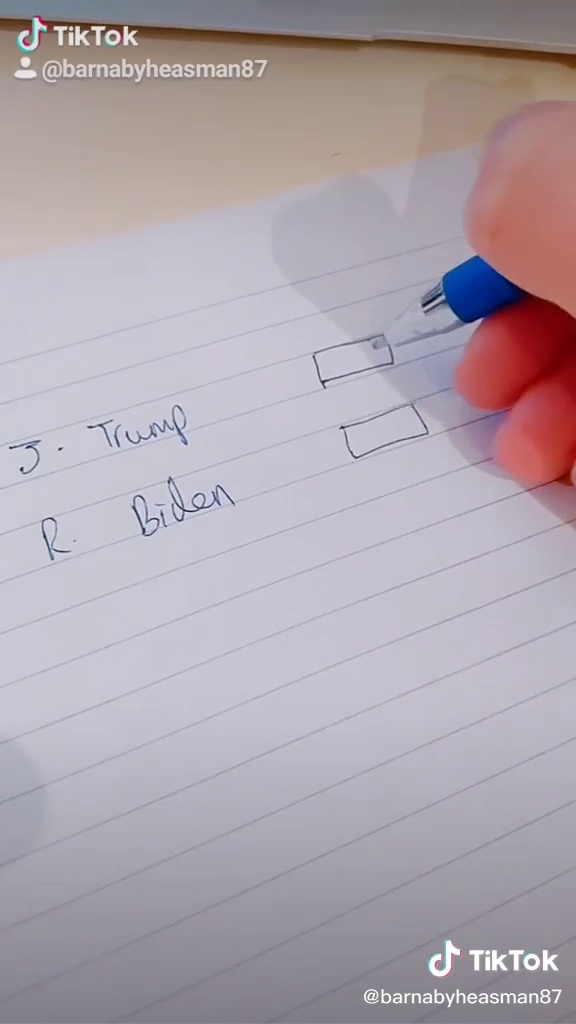 TikTok
@barnabyheasman87
J. Trump
R. Biden
TikTok
@barnabyheasman87